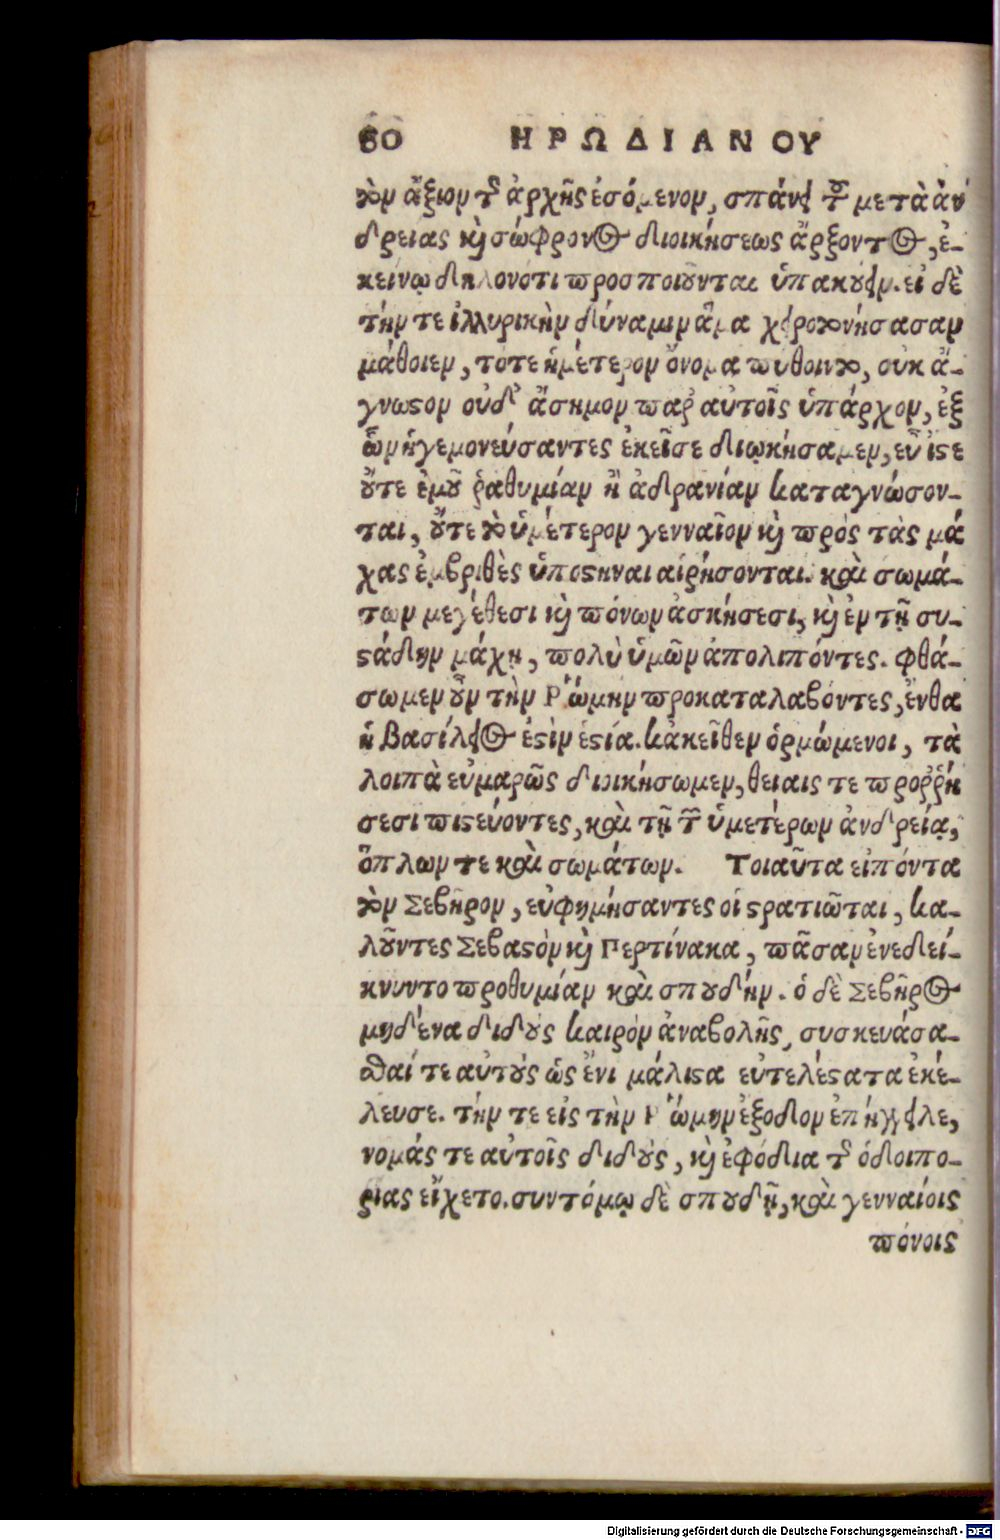 60 ΗΡΩΔΙΑΝΟΥ
τὸν ἄξιον τῆς ἀρχῆς ἐσόμενον, σπάνει τοῦ μετὰ ἀν
δρείας καὶ σώφρονος διοικήσεως ἄρξοντος, ἐ-
κείνῳ δηλονότι προσποιοῦνται ὑπακούειν. εἰ δὲ
τήν τε ἰλλυρικὴν δύναμιν ἅμα χειροτονήσασαν
μάθοιεν, τό τε ἡμέτερον ὄνομα πύθοιντο, οὐκ ἄ-
γνωστον οὐδ' ἄσημον παρ' αὐτοῖς ὑπάρχον, ἐξ
ὧν ἡγεμονεύσαντες ἐκεῖσε διῳκήσαμεν, εὖ ἴστε
οὔτε ἐμοῦ ῥαθυμίαν ἢ ἀδρανίαν καταγνώσον-
ται, οὔτε τὸ ὑμέτερον γενναῖον καὶ πρὸς τὰς μά
χας ἐμβριθὲς ὑποστῆναι αἱρήσονται. καὶ σωμά-
των μεγέθεσι καὶ πόνων ἀσκήσεσι, καὶ ἐν τῇ συ-
στάδην μάχῃ, πολὺ ὑμῶν ἀπολιπόντες. φθά-
σωμεν οὖν τὴν Ῥώμην προκαταλαβόντες, ἔνθα
ἡ βασίλειος ἐστὶν ἑστία. κἀκεῖθεν ὁρμώμενοι, τὰ
λοιπὰ εὐμαρῶς διοικήσωμεν, θείαις τε προῤῥή
σεσι πιστεύοντες, καὶ τῇ τῶν ὑμετέρων ἀνδρείᾳ,
ὅπλων τε καὶ σωμάτων. Τοιαῦτα εἰπόντα
τὸν Σεβῆρον, εὐφημήσαντες οἱ στρατιῶται, κα-
λοῦντες Σεβαστὸν καὶ Περτίνακα, πᾶσαν ἐνεδεί-
κνυντο προθυμίαν καὶ σπουδήν. ὁ δὲ Σεβῆρος
μηδένα διδοὺς καιρὸν ἀναβολῆς, συσκευάσα-
σθαί τε αὐτοὺς ὡς ἔνι μάλιστα εὐτελέστατα ἐκέ-
λευσε. τήν τε εἰς τὴν Ῥώμην ἔξοδον ἐπήγγειλε,
νομάς τε αὐτοῖς διδοὺς, καὶ ἐφόδια τῆς ὁδοιπο-
ρίας εἴχετο. συντόμῳ δὲ σπουδῇ, καὶ γενναίοις
πόνοις
Digitalisierung gefördert durch die Deutsche Forschungsgemeinschaft - DFG